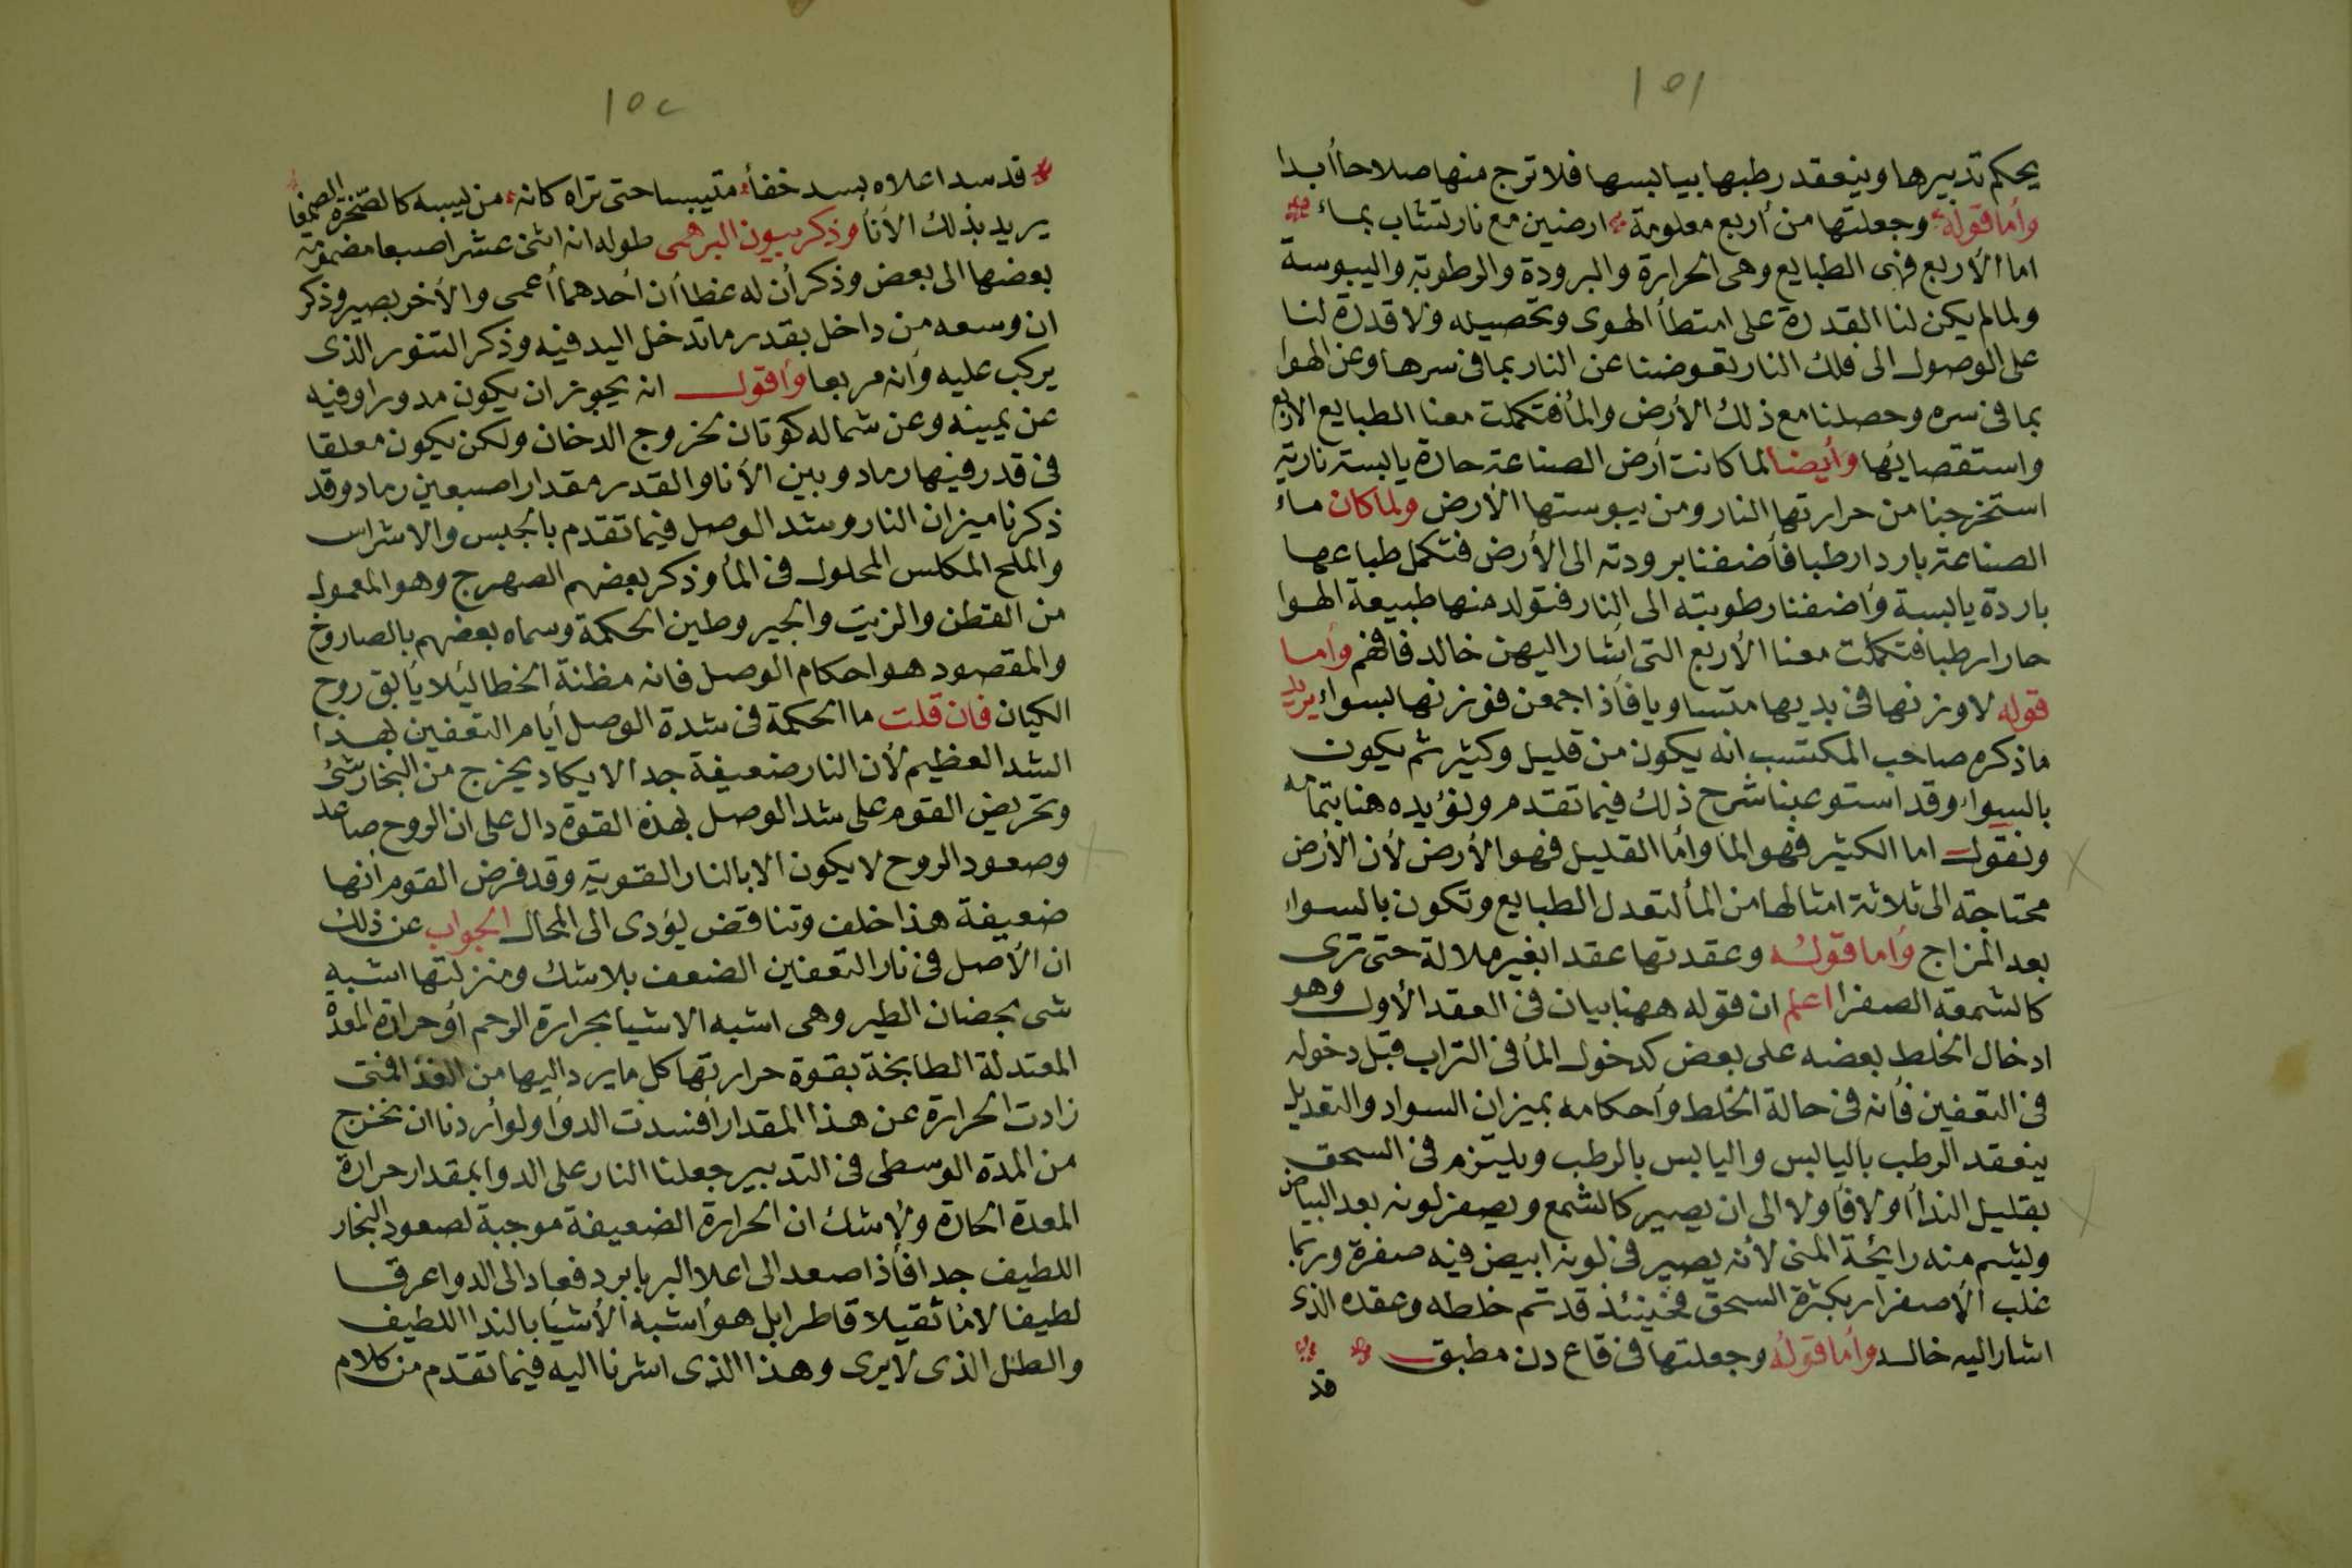 ١٥١
يحكم تدبيرها وينعقد رطبها بيابسها فلا ترج منها صلاحا أبدا
وأما قوله وجعلتها من أربع معلومة ارضين مع نار تشاب بماء
اما الأربع فهى الطبايع وهى الحرارة والبرودة والرطوبة واليبوسة
ولما لم يكن لنا القدرة على امتطأ الهوى وتحصيله ولا قدرة لنا
على الوصول الى فلك النار تعوضنا عن النار بما فى سرها وعن الهوا
بما فى سره وحصلنا مع ذلك الأرض والمأ فتكملت معنا الطبايع الاربع
واستقصاياتها وأيضا لما كانت أرض الصناعة حارة يابسة نارية
استخرجنا من حرارتها النار ومن يبوستها الأرض ولما كان ماء
الصناعة باردا رطبا فأضفنا برودته الى الأرض فتكمل طباعها
باردة يابسة وأضفنا رطوبته الى النار فتولد منها طبيعة الهوا
حارا رطبا فتكملت معنا الأربع التى اشار اليهن خالد فافهم وأما
قوله لاوزنها فى بديها متساويا فأذا اجمعن فوزنها بسواء يريد
ما ذكره صاحب المكتسب انه يكون من قليل وكثير ثم يكون
بالسواء وقد استوعبنا شرح ذلك فيما تقدم ونؤيده هنا بتمامه
ونقول اما الكثير فهو الما وأما القليل فهو الأرض لأن الأرض
محتاجة الى ثلاثة امثالها من المأ لتعدل الطبايع وتكون بالسواء
بعد المزاج وأما قوله وعقدتها عقدا بغير ملالة حتى ترى
كالشمعة الصفرا اعلم ان قوله ههنا بيان فى العقد الأول وهو
ادخال الخلط بعضه على بعض كدخول المأ فى التراب قبل دخوله
فى التعفين فأنه فى حالة الخلط وأحكامه بميزان السواد والتعديل
ينعقد الرطب باليابس واليابس بالرطب ويلتزم فى السحق
بقليل الندأ أولا فأولا الى ان يصير كالشمع ويصفر لونه بعد البياض
ويشم منه رايحة المنى لأنه يصير فى لونه ابيض فيه صفرة وربما
غلب الأصفرار بكثرة السحق فحينئذ قد تم خلطه وعقده الذى
اشار اليه خالد وأما قوله وجعلتها فى قاع دن مطبق
قد
١٥٢
قد سد اعلاه بسد خفأ متيبسا حتى تراه كانه من يبسه كالصخرة الصمغا
يريد بذلك الأنأ وذكر بيون البرهمى طوله انه اثنى عشر اصبعا مضمومة
بعضها الى بعض وذكر أن له غطاأن أحدهما أعمى والأخر بصير وذكر
ان وسعه من داخل بقدر ما تدخل اليد فيه وذكر التنور الذى
يركب عليه وأنه مربعا وأقول انه يجوز ان يكون مدورا وفيه
عن يمينه وعن شماله كوتان لخروج الدخان ولكن يكون معلقا
فى قدر فيها رماد وبين الأنا والقدر مقدار اصبعين رماد وقد
ذكرنا ميزان النار وشد الوصل فيما تقدم بالجبس والاشراس
والملح المكلس المحلول فى المأ وذكر بعضهم الصهرج وهو المعمول
من القطن والزيت والجير وطين الحكمة وسماه بعضهم بالصاروخ
والمقصود هو احكام الوصل فانه مظنة الخطا ليلا يأبق روح
الكيان فان قلت ما الحكمة فى شدة الوصل أيام التعفين بهذا
الشد العظيم لأن النار ضعيفة جدا لا يكاد يخرج من البخار شئ
وتحريض القوم على شد الوصل بهذه القوة دال على ان الروح صاعد
وصعود الروح لا يكون الا بالنار القوية وقد فرض القوم أنها
ضعيفة هذا خلف وتناقض يؤدى الى المحال الجواب عن ذلك
ان الأصل فى نار التعفين الضعف بلا شك ومنزلتها اشبه
شى بحضان الطير وهى اشبه الاشيا بحرارة الرحم أو حرارة المعدة
المعتدلة الطابخة بقوة حرارتها كل ما يرد اليها من الغذا فمتى
زادت الحرارة عن هذا المقدار أفسدت الدوأ ولو أردنا ان نخرج
من المدة الوسطى فى التدبير جعلنا النار على الدوا بمقدار حرارة
المعدة الحارة ولا شك ان الحرارة الضعيفة موجبة لصعود البخار
اللطيف جدا فأذا صعد الى اعلا البربا برد فعاد الى الدوا عرقا
لطيفا لا مأ ثقيلا قاطرا بل هو أشبه الأشيا بالندا اللطيف
والطل الذى لا يرى وهذا الذى اشرنا اليه فيما تقدم من كلام